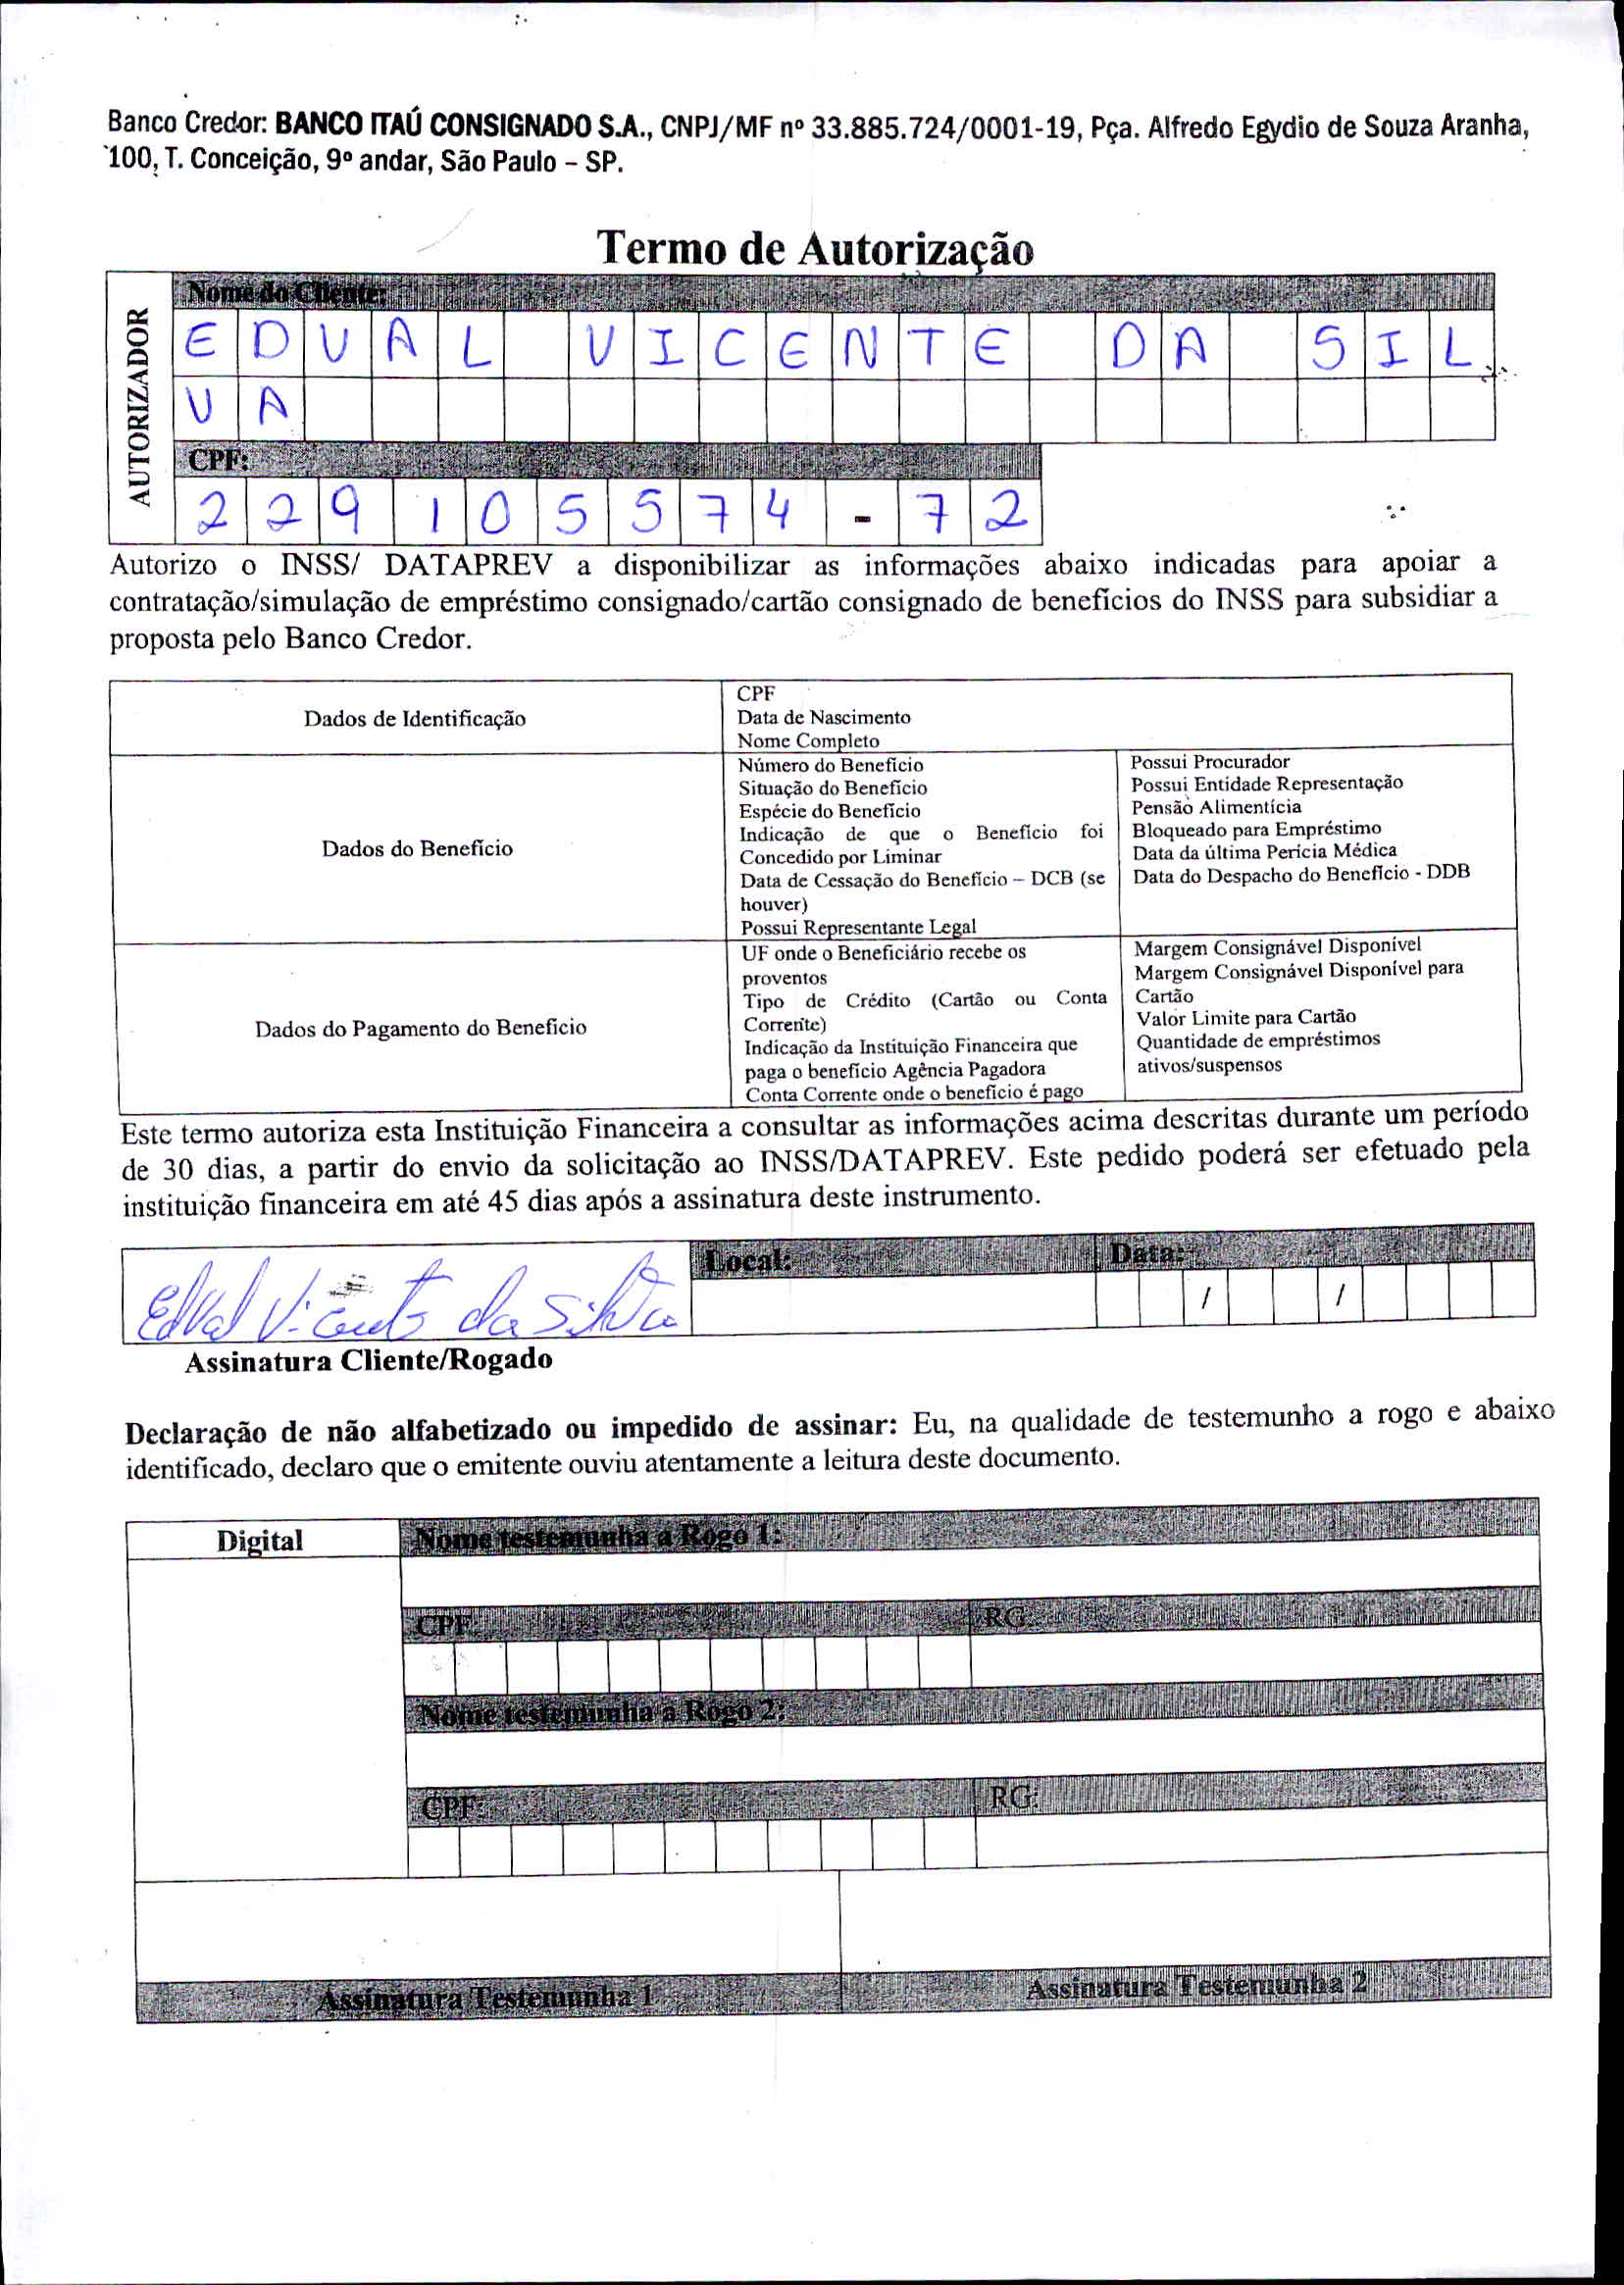 Banco Credor: BANCO ITAÚ CONSIGNADO S.A., CNPJ/MF nº 33.885.724/0001-19, Pça. Alfredo Egydio de Souza Aranha,
100, T. Conceição, 9º andar, São Paulo – SP.
Termo de Autorização
AUTORIZADOR
Nome do Cliente:
EDVAL VICENTE DA SIL
VA
CPF:
229105574-72
Autorizo o INSS/ DATAPREV a disponibilizar as informações abaixo indicadas para apoiar a
contratação/simulação de empréstimo consignado/cartão consignado de benefícios do INSS para subsidiar a
proposta pelo Banco Credor.
Dados de Identificação
CPF
Data de Nascimento
Nome Completo
Dados do Benefício
Número do Benefício
Situação do Benefício
Espécie do Benefício
Indicação de que o Benefício foi
Concedido por Liminar
Data de Cessação do Benefício – DCB (se
houver)
Possui Representante Legal
Possui Procurador
Possui Entidade Representação
Pensão Alimentícia
Bloqueado para Empréstimo
Data da última Perícia Médica
Data do Despacho do Benefício - DDB
Dados do Pagamento do Benefício
UF onde o Beneficiário recebe os
proventos
Tipo de Crédito (Cartão ou Conta
Corrente)
Indicação da Instituição Financeira que
paga o benefício Agência Pagadora
Conta Corrente onde o benefício é pago
Margem Consignável Disponível
Margem Consignável Disponível para
Cartão
Valor Limite para Cartão
Quantidade de empréstimos
ativos/suspensos
Este termo autoriza esta Instituição Financeira a consultar as informações acima descritas durante um período
de 30 dias, a partir do envio da solicitação ao INSS/DATAPREV. Este pedido poderá ser efetuado pela
instituição financeira em até 45 dias após a assinatura deste instrumento.
Local:
Data:
Edval Vicente da Silva
/ /
Assinatura Cliente/Rogado
Declaração de não alfabetizado ou impedido de assinar: Eu, na qualidade de testemunho a rogo e abaixo
identificado, declaro que o emitente ouviu atentamente a leitura deste documento.
Digital
Nome testemunha a Rogo 1:
CPF:
RG:
Nome testemunha a Rogo 2:
CPF:
RG:
Assinatura Testemunha 1
Assinatura Testemunha 2